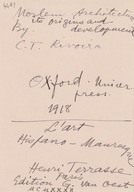 Moslem Architecture
its origins and
By development
G. T. Rivoira
Oxford. Univer
press.
1918
L'art
Hispano-Mauresque
Henri Terrasse
Paris
Edition G. Van Oest